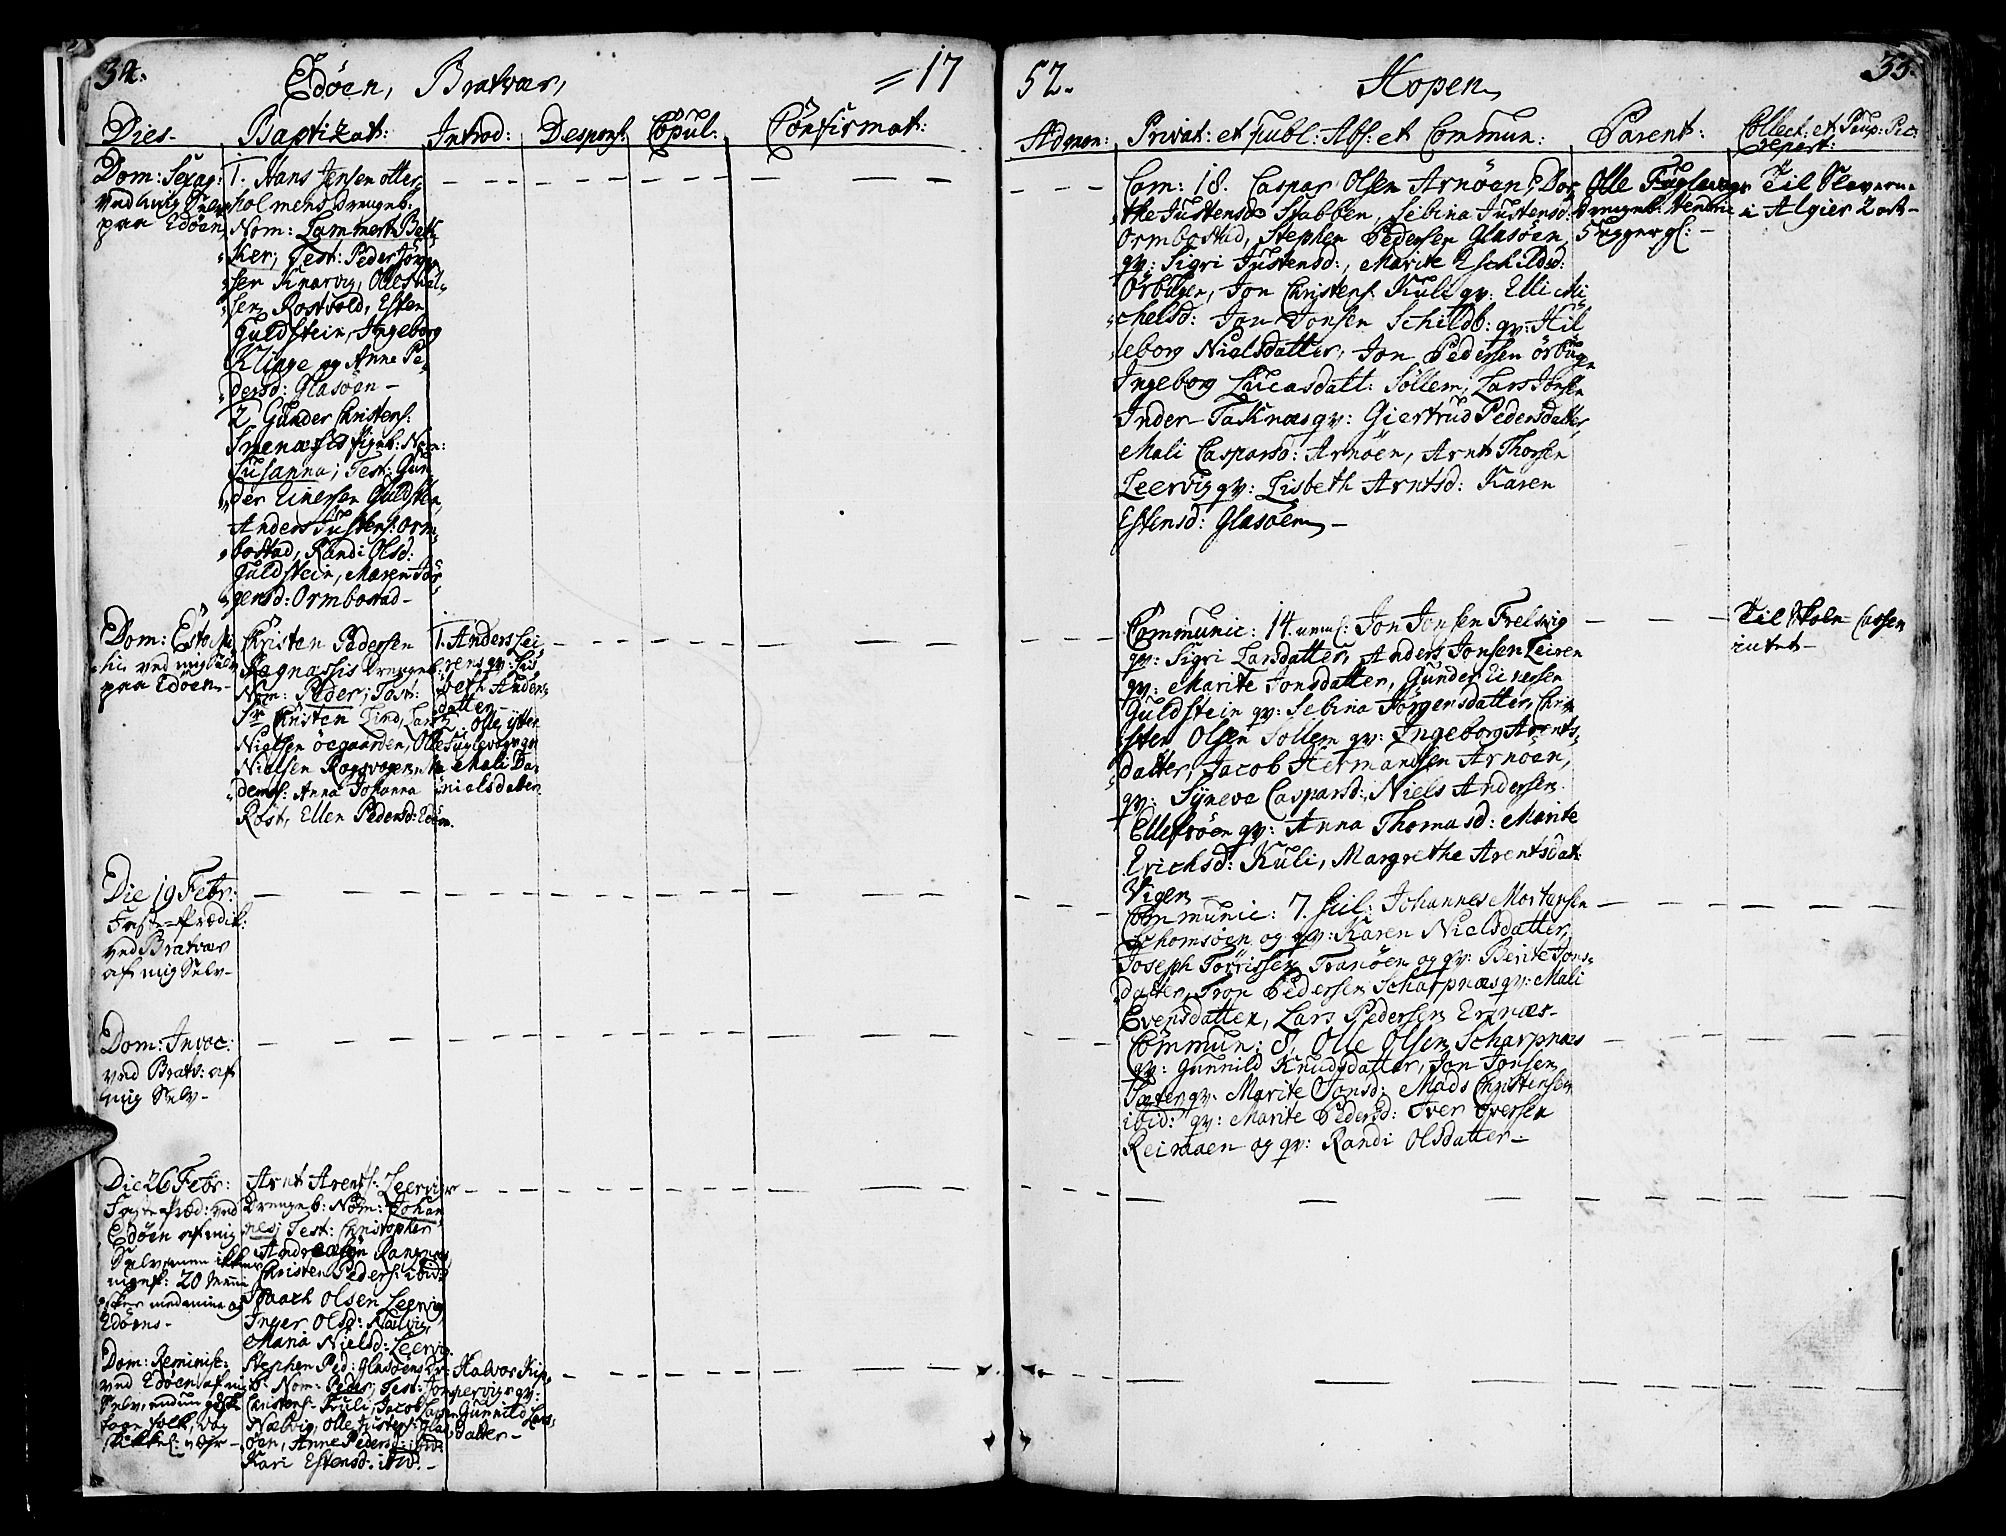 34.
Edøen, Bratvær,
= 17
Dies.
Baptizat:
Introd:
Despons:
Copul:
Confirmat:
Dom: Sexag:
ved mig Selv
paa Edøen
1. Hans Jensen otter
holmens Drengeb:
Nom: Lammert Bek
ker, Test: Peder Jør
sen Knarvig, Olle
sen Rostvold, Esten
Guldstein, Ingeborg
Klinge og Anne Pe
dersd: Glasøen -
2. Gunder Christens:
Pigeb: Nom:
Susanna; Test: Gun
der Einersen Guldstein
Anders Justens: Orm
bostad, Randi Olsd:
Guldstein, Maren Jør
gensd: Ormbostad -
Dom: Esto
ved mig Selv
paa Edøen -
Christen Pedersen
Magnæssis Drengeb:
Nom: Peder; Test:
Sr. Christen Lind, Lars
Nielsen öegaarden, Olle
Nielsen
Anna Johanna
Röst, Ellen Pedersd: Edöen.
1. Anders Lei
rens qv: Lis
beth Anders
datter -
2. Olle ytter
Fuglevogs qv
Mali Da
nielsdatter
Die 19 Febr:
Faste-Prædik:
ved Bratvær
af mig Selv -
Dom: Invoc:
ved Bratv: af
mig Selv -
Die 26 Febr:
Fastepræd: ved
Edöen af mig
Selv, men ikkun
20 Menne
sker med mine og
Edöens -
Arnt Arents: Leervigs
Drengeb: Nom: Johan
nes; Test: Christopher
Andreasen Ramnæs
Christen Peders: ibid:
Isaach Olsen Leervig
Inger Olsd:
Maria Nielsd: Leervig
Dom: Reminisc:
ved Edöen af mig
Selv,
folk,
Stephen Ped: Glasöens Dr:
b: Nom: Peder; Test: Jon
Christens: Kuli, Jacob Lars
Nælvig, Olle Justens: Glas
öen, Anne Peders: ibid:
Kari Estensd: ibid. -
Halvor Kip
pervigs qv:
Gunnild Lars
datter -
52.
Hopen
35.
Admon:
Privat: et publ: Abs: et Commun:
Parent:
Collect: et Paup: Pec:
repart:
Com: 18. Caspar Olsen Arnöen, Dor
the Justensd: Stabben, Sebina Justensd:
Ormbostad, Stephen Pedersen Glasöen
qv: Sigri Justensd:, Marite Eschildsd:
Örbugen, Jon Christens: Kuli qv: Elli Mi
chelsd: Jon Jonsen Schildb: qv: Hil
leborg Nielsdatter, Jon Pedersen örbugn
Ingeborg Lucasdatt: Sollem, Lars Jonsen
Inder-Taknæs qv: Giertrud Pedersdatter,
Mali Caspard: Arnöen, Arnt Thorsen
Leervig qv: Lisbeth Arntsd: Karen
Estensd: Glasöen -
Olle Fuglevogs
Drengeb: Hendric
5 uger gl: -
Til Slaverne
i Algier 2 ort -
Communic: 14. Jon Jonsen Frelsvig
qv: Sigri Larsdatter, Anders Jonsen Leiren
qv: Marite Jonsdatter, Gunder Einersen
Guldstein qv: Sebina Jörgensdatter, Chri
sten Olsen Sollem qv: Ingeborg Arents
datter, Jacob Hermandsen Arnöen,
qv: Syneve Caspard:, Niels Andersen
Ellefsöen qv: Anna Thomasd: Marite
Erichsd: Kuli, Margrethe Arentsdat:
Vigen -
Til Skole Cassen
intet -
Communic: 7. Johannes Mortensen
Schomsöen og qv: Karen Nielsdatter,
Joseph Torrissen Tranöen og qv: Berite Jons
datter, Tron Pedersen Scharpnæs qv: Mali
Evensdatter, Lars Pedersen Ernæs -
Commun: 8. Olle Olsen Scharpnæs
qv: Gunnild Knudsdatter, Jon Jonsen
Sæter qv: Marite Jonsd: Mads Christensen
ibid: qv: Marite Pedersd: Iver Iversen
Reimaen og qv: Randi Olsdatter -